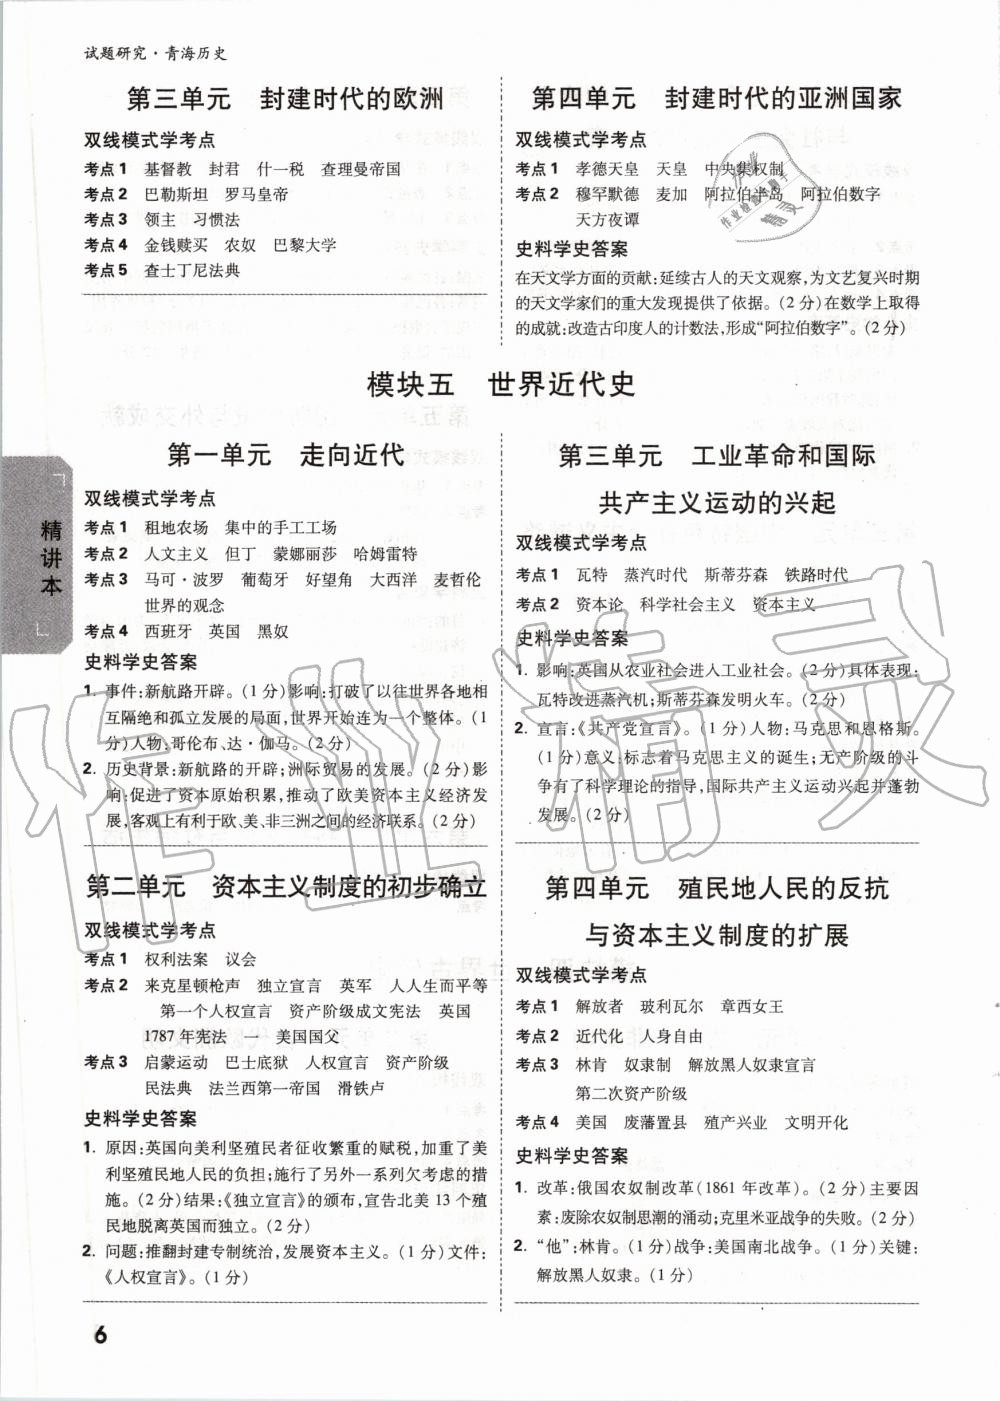 试题研究·青海历史
第三单元 封建时代的欧洲
双线模式学考点
考点1 基督教 封君 什一税 查理曼帝国
考点2 巴勒斯坦 罗马皇帝
考点3 领主 习惯法
考点4 金钱赎买 农奴 巴黎大学
考点5 查士丁尼法典
第四单元 封建时代的亚洲国家
双线模式学考点
考点1 孝德天皇 天皇 中央集权制
考点2 穆罕默德 麦加 阿拉伯半岛 阿拉伯数字
天方夜谭
史料学史答案
在天文学方面的贡献:延续古人的天文观察,为文艺复兴时期
的天文学家们的重大发现提供了依据。(2分)在数学上取得
的成就:改造古印度人的计数法,形成“阿拉伯数字”。(2分)
模块五 世界近代史
第一单元 走向近代
双线模式学考点
考点1 租地农场 集中的手工工场
考点2 人文主义 但丁 蒙娜丽莎 哈姆雷特
考点3 马可·波罗 葡萄牙 好望角 大西洋 麦哲伦
世界的观念
考点4 西班牙 英国 黑奴
史料学史答案
1. 事件:新航路开辟。(1分)影响:打破了以往世界各地相
互隔绝和孤立发展的局面,世界开始连为一个整体。(1
分)人物:哥伦布、达·伽马。(2分)
2. 历史背景:新航路的开辟;洲际贸易的发展。(2分)影
响:促进了资本原始积累,推动了欧美资本主义经济发
展,客观上有利于欧、美、非三洲之间的经济联系。(2分)
第二单元 资本主义制度的初步确立
双线模式学考点
考点1 权利法案 议会
考点2 来克星顿枪声 独立宣言 英军 人人生而平等
第一个人权宣言 资产阶级成文宪法 英国
1787年宪法 一 美国国父
考点3 启蒙运动 巴士底狱 人权宣言 资产阶级
民法典 法兰西第一帝国 滑铁卢
史料学史答案
1. 原因:英国向美利坚殖民者征收繁重的赋税,加重了美
利坚殖民地人民的负担;施行了另外一系列欠考虑的措
施。(2分)结果:《独立宣言》的颁布,宣告北美13个殖
民地脱离英国而独立。(2分)
2. 问题:推翻封建专制统治,发展资本主义。(1分)文件:
《人权宣言》。(1分)
第三单元 工业革命和国际
共产主义运动的兴起
双线模式学考点
考点1 瓦特 蒸汽时代 斯蒂芬森 铁路时代
考点2 资本论 科学社会主义 资本主义
史料学史答案
1. 影响:英国从农业社会进入工业社会。(2分)具体表现:
瓦特改进蒸汽机;斯蒂芬森发明火车。(2分)
2. 宣言:《共产党宣言》。(1分)人物:马克思和恩格斯。
(1分)意义:标志着马克思主义的诞生;无产阶级的斗
争有了科学理论的指导,国际共产主义运动兴起并蓬勃
发展。(2分)
第四单元 殖民地人民的反抗
与资本主义制度的扩展
双线模式学考点
考点1 解放者 玻利瓦尔 章西女王
考点2 近代化 人身自由
考点3 林肯 奴隶制 解放黑人奴隶宣言
第二次资产阶级
考点4 美国 废藩置县 殖产兴业 文明开化
史料学史答案
1. 改革:俄国农奴制改革(1861年改革)。(2分)主要因
素:废除农奴制思潮的涌动;克里米亚战争的失败。(2分)
2. “他”:林肯。(1分)战争:美国南北战争。(1分)关键:
解放黑人奴隶。(1分)
精讲本
6
作业精灵